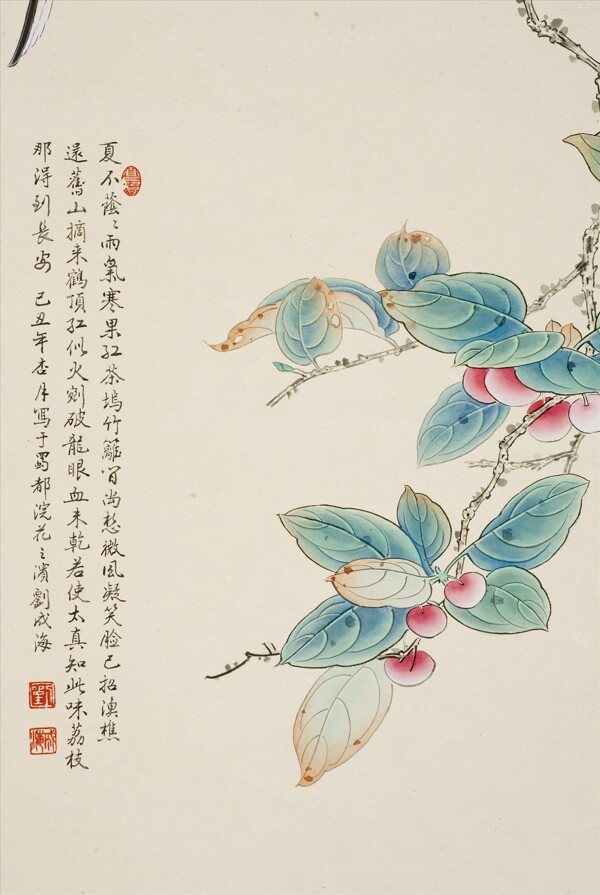 夏木蔭〻雨氣寒果紅茶塢竹籬間尚愁微風凝笑臉已招漁樵
還舊山摘來鶴頂紅似火剜破龍眼血未乾若使太真知此味荔枝
那得到長安 己丑年杏月寫于蜀都浣花之濱劉成海